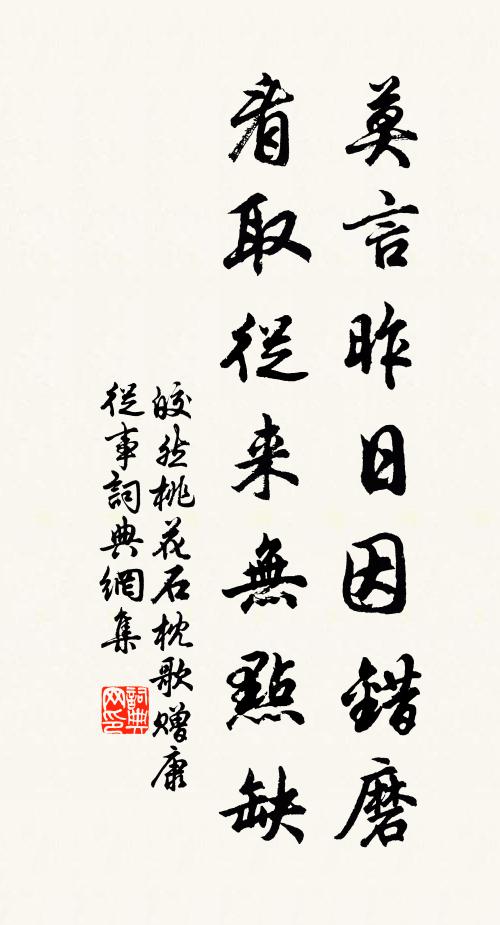 莫言昨日因錯磨
看取從来無點缺
皎然桃花石枕歌赠康
從事詞典網集
詞典网印